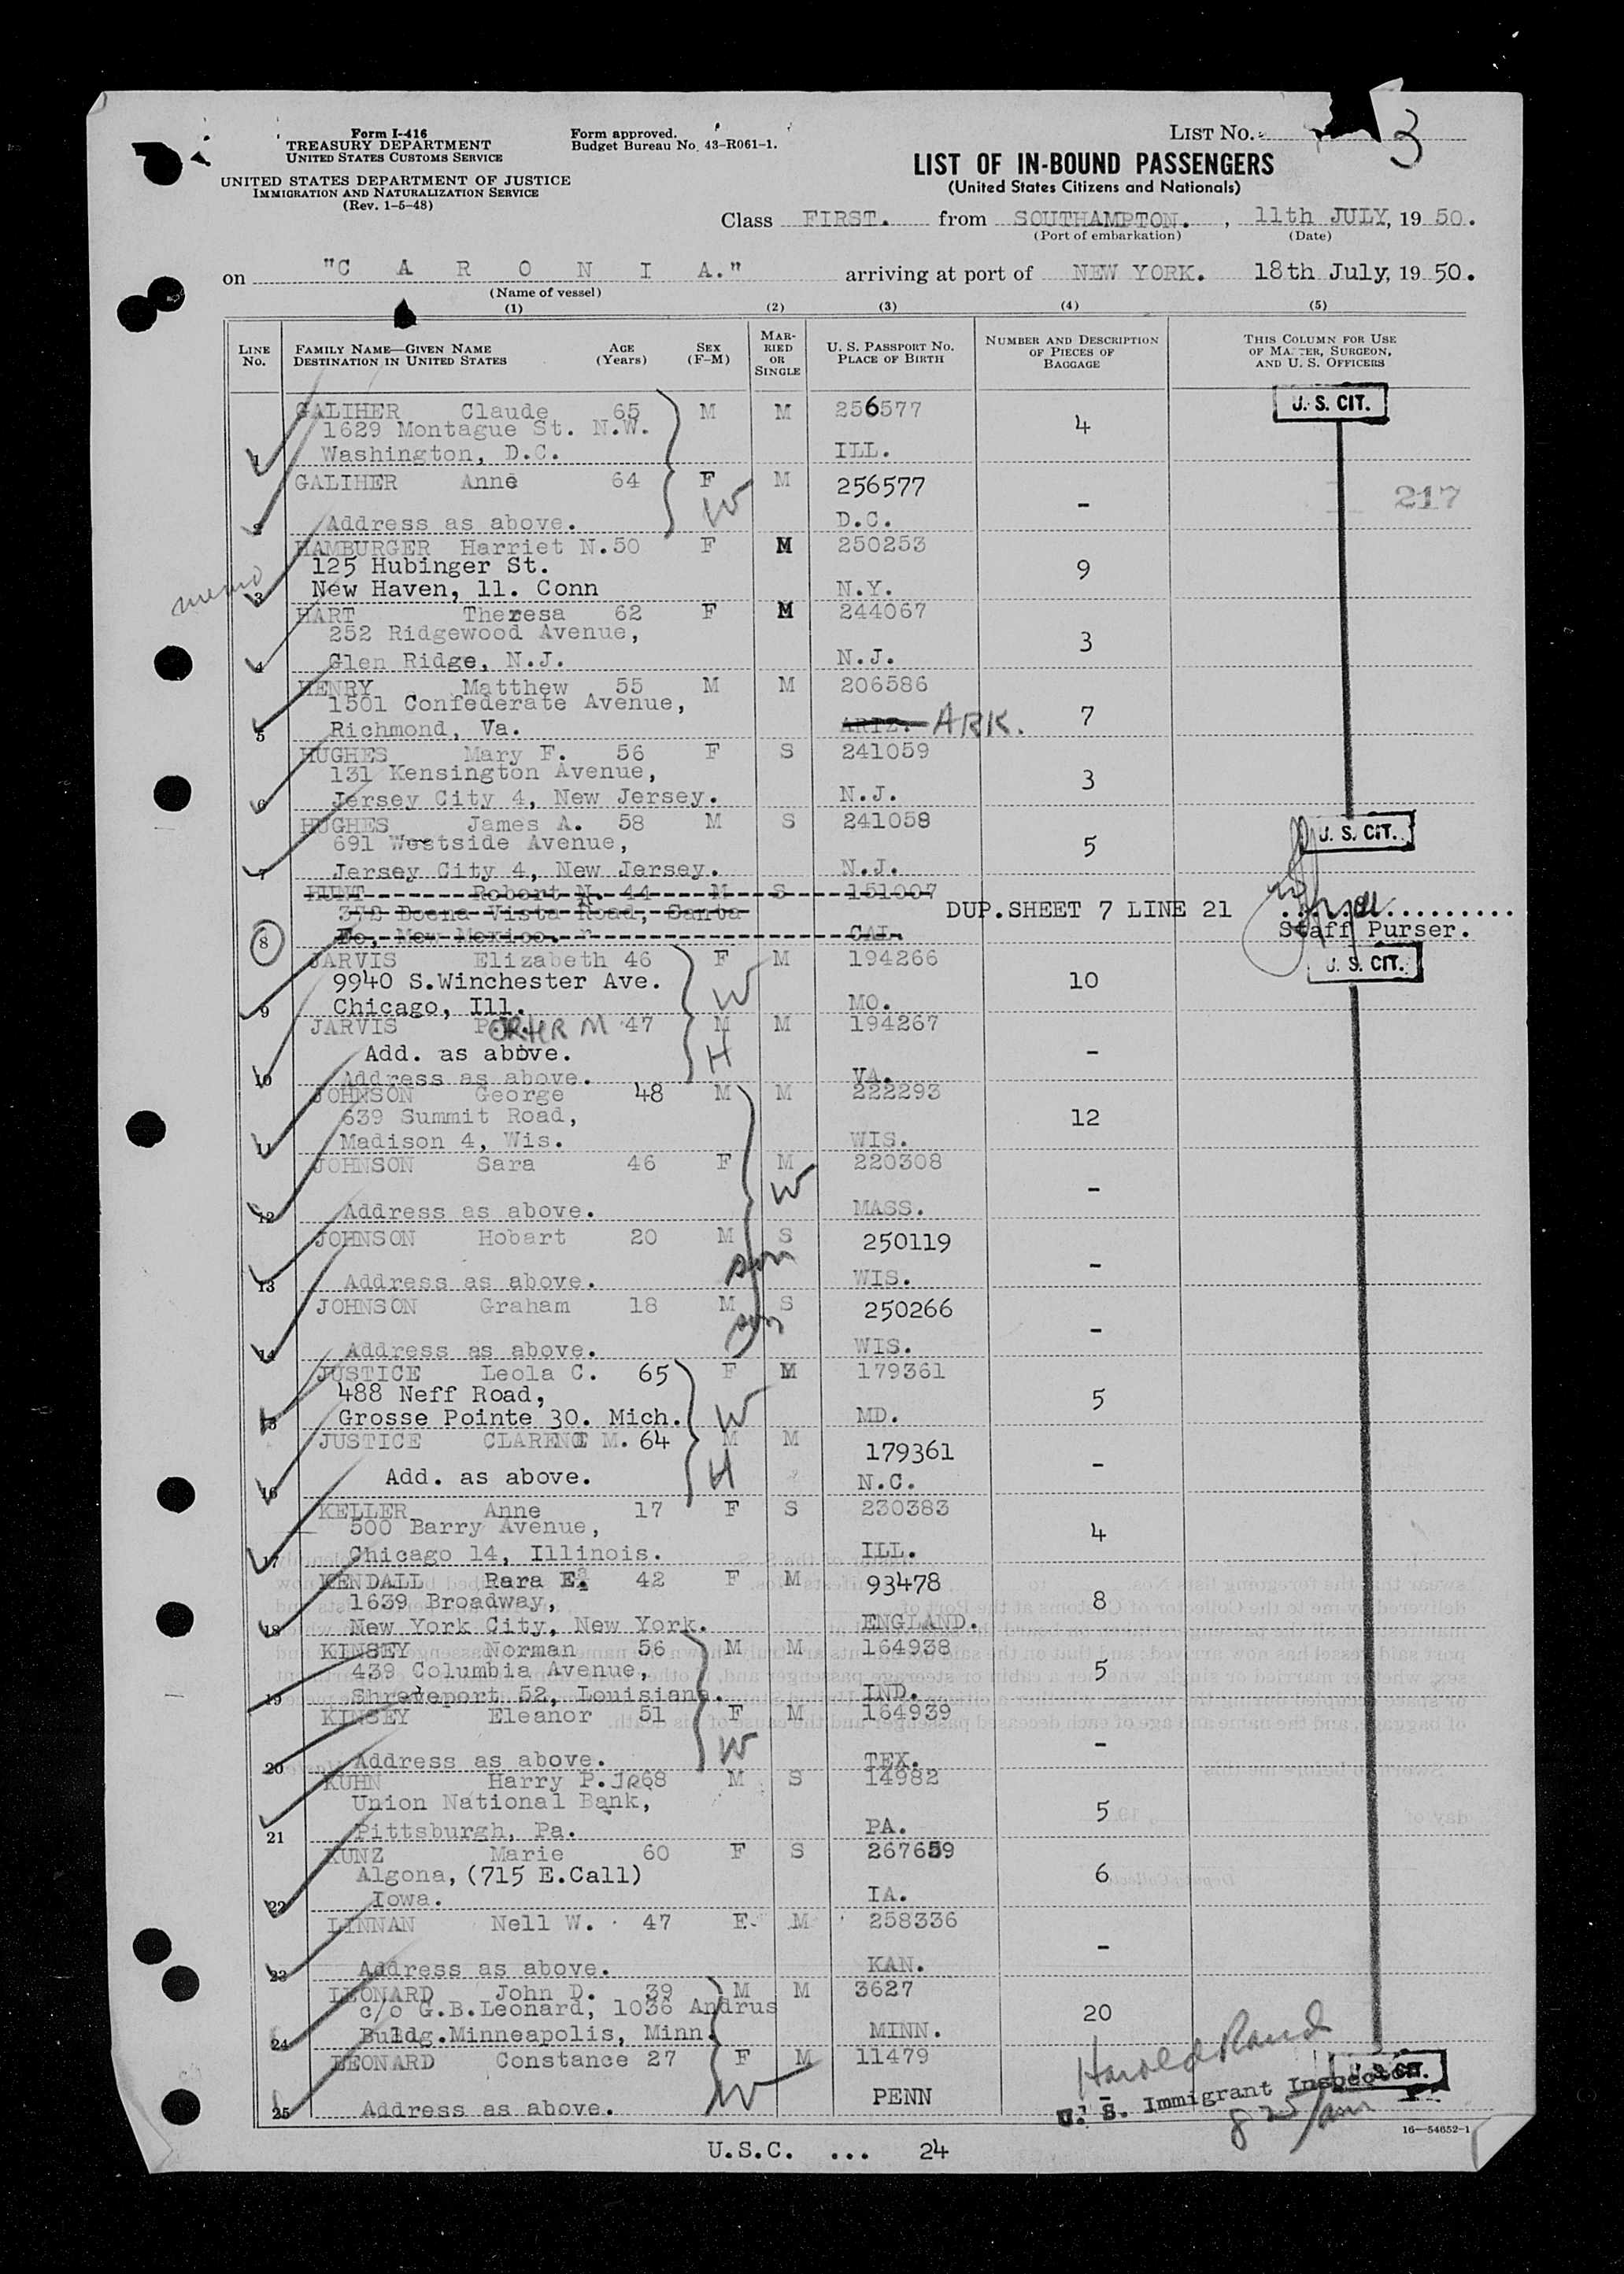 Form I-416
TREASURY DEPARTMENT
UNITED STATES CUSTOMS SERVICE
UNITED STATES DEPARTMENT OF JUSTICE
IMMIGRATION AND NATURALIZATION SERVICE
(Rev. 1-5-48)
Form approved.
Budget Bureau No. 43-R061-1.
LIST NO. 3
LIST OF IN-BOUND PASSENGERS
(United States Citizens and Nationals)
Class FIRST. from SOUTHAMPTON. , 11th JULY, 1950.
(Port of embarkation) (Date)
on "C A R O N I A." arriving at port of NEW YORK. 18th July, 1950.
(Name of vessel)
(1) (2) (3) (4) (5)
LINE NO.
FAMILY NAME—GIVEN NAME
DESTINATION IN UNITED STATES
AGE (Years)
SEX (F-M)
MARRIED OR SINGLE
U. S. PASSPORT NO.
PLACE OF BIRTH
NUMBER AND DESCRIPTION OF PIECES OF BAGGAGE
THIS COLUMN FOR USE OF MASTER, SURGEON, AND U. S. OFFICERS
GALIHER Claude 65 M M 256577 U. S. CIT.
1629 Montague St. N.W. 4
1 Washington, D.C. ILL.
GALIHER Anne 64 F M 256577 217
W -
2 Address as above. D.C.
HAMBURGER Harriet N. 50 F M 250253
125 Hubinger St. 9
memo 3 New Haven, 11. Conn N.Y.
HART Theresa 62 F M 244067
252 Ridgewood Avenue, 3
4 Glen Ridge, N.J. N.J.
HENRY Matthew 55 M M 206586
1501 Confederate Avenue, 7
5 Richmond, Va. ARIZ. ARK.
HUGHES Mary F. 56 F S 241059
131 Kensington Avenue, 3
6 Jersey City 4, New Jersey. N.J.
HUGHES James A. 58 M S 241058 U. S. CIT.
691 Westside Avenue, 5
7 Jersey City 4, New Jersey. N.J.
HUNT Robert N. 44 M S 151007
372 Buena Vista Road, Santa DUP.SHEET 7 LINE 21
8 Fe, New Mexico. CAL. Staff Purser.
JARVIS Elizabeth 46 F M 194266 U. S. CIT.
9940 S.Winchester Ave. W 10
9 Chicago, Ill. MO.
JARVIS PORTER M 47 M M 194267
Add. as above. H -
10 Address as above. VA.
JOHNSON George 48 M M 222293
639 Summit Road, 12
11 Madison 4, Wis. WIS.
JOHNSON Sara 46 F M 220308
W -
12 Address as above. MASS.
JOHNSON Hobart 20 M S 250119
son -
13 Address as above. WIS.
JOHNSON Graham 18 M S 250266
son -
14 Address as above. WIS.
JUSTICE Leola C. 65 F M 179361
488 Neff Road, W 5
15 Grosse Pointe 30. Mich. MD.
JUSTICE CLARENCE M. 64 M M 179361
16 Add. as above. H N.C. -
KELLER Anne 17 F S 230383
500 Barry Avenue, 4
17 Chicago 14, Illinois. ILL.
KENDALL Rara E. 42 F M 93478
1639 Broadway, 8
18 New York City, New York. ENGLAND.
KINSEY Norman 56 M M 164938
439 Columbia Avenue, 5
19 Shreveport 52, Louisiana. IND.
KINSEY Eleanor 51 F M 164939
W -
20 Address as above. TEX.
KUHN Harry P. JR 68 M S 14982
Union National Bank, 5
21 Pittsburgh, Pa. PA.
KUNZ Marie 60 F S 267659
Algona, (715 E.Call) 6
22 Iowa. IA.
LINNAN Nell W. 47 F M 258336
-
23 Address as above. KAN.
LEONARD John D. 39 M M 3627
c/o G.B.Leonard, 1036 Andrus 20
24 Buldg.Minneapolis, Minn. MINN.
LEONARD Constance 27 F M 11479 Harold Rand U. S. CIT.
W - U. S. Immigrant Inspector
25 Address as above. PENN 8 25/am
16—54652-1
U.S.C. ... 24